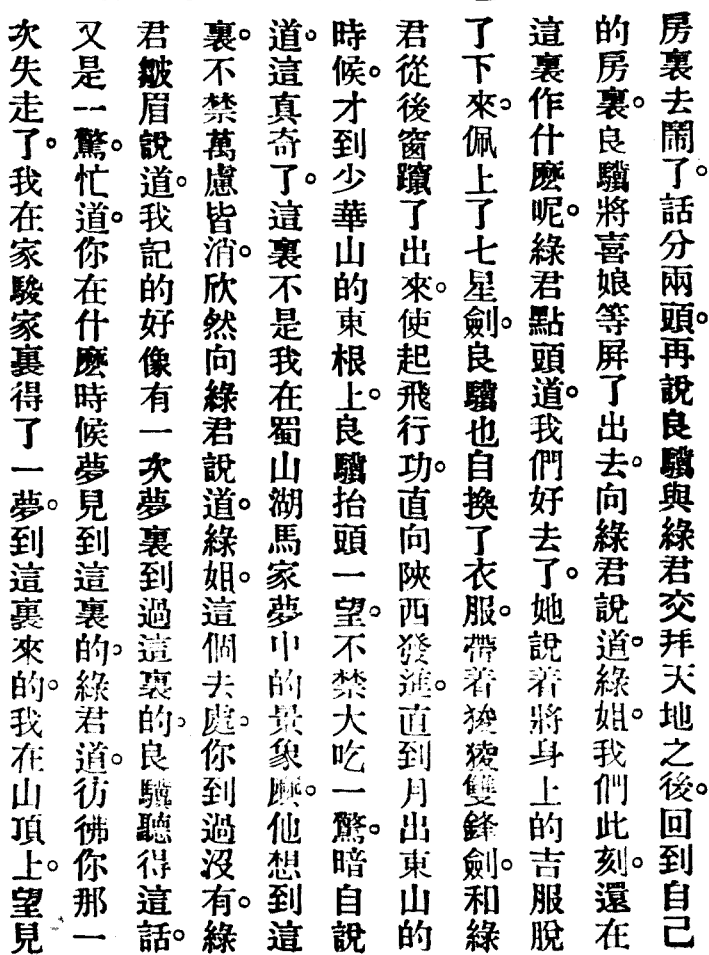 房裏去鬧了。話分兩頭。再說良驥與綠君交拜天地之後。回到自己
的房裏。良驥將喜娘等屏了出去。向綠君說道。綠姐。我們此刻。還在
這裏作什麽呢。綠君點頭道。我們好去了。她說着將身上的吉服脫
了下來。佩上了七星劍。良驥也自換了衣服。帶着狻猊雙鋒劍。和綠
君從後窗躥了出來。使起飛行功。直向陝西發進。直到月出東山的
時候。才到少華山的東根上。良驥抬頭一望。不禁大吃一驚。暗自說
道。這真奇了。這裏不是我在蜀山湖馬家夢中的景象麽。他想到這
裏。不禁萬慮皆消。欣然向綠君說道。綠姐。這個去處。你到過沒有。綠
君皺眉說道。我記的好像有一次夢裏到過這裏的。良驥聽得這話。
又是一驚。忙道。你在什麽時候夢見到這裏的。綠君道。彷彿你那一
次失走了。我在家駿家裏得了一夢。到這裏來的。我在山頂上。望見